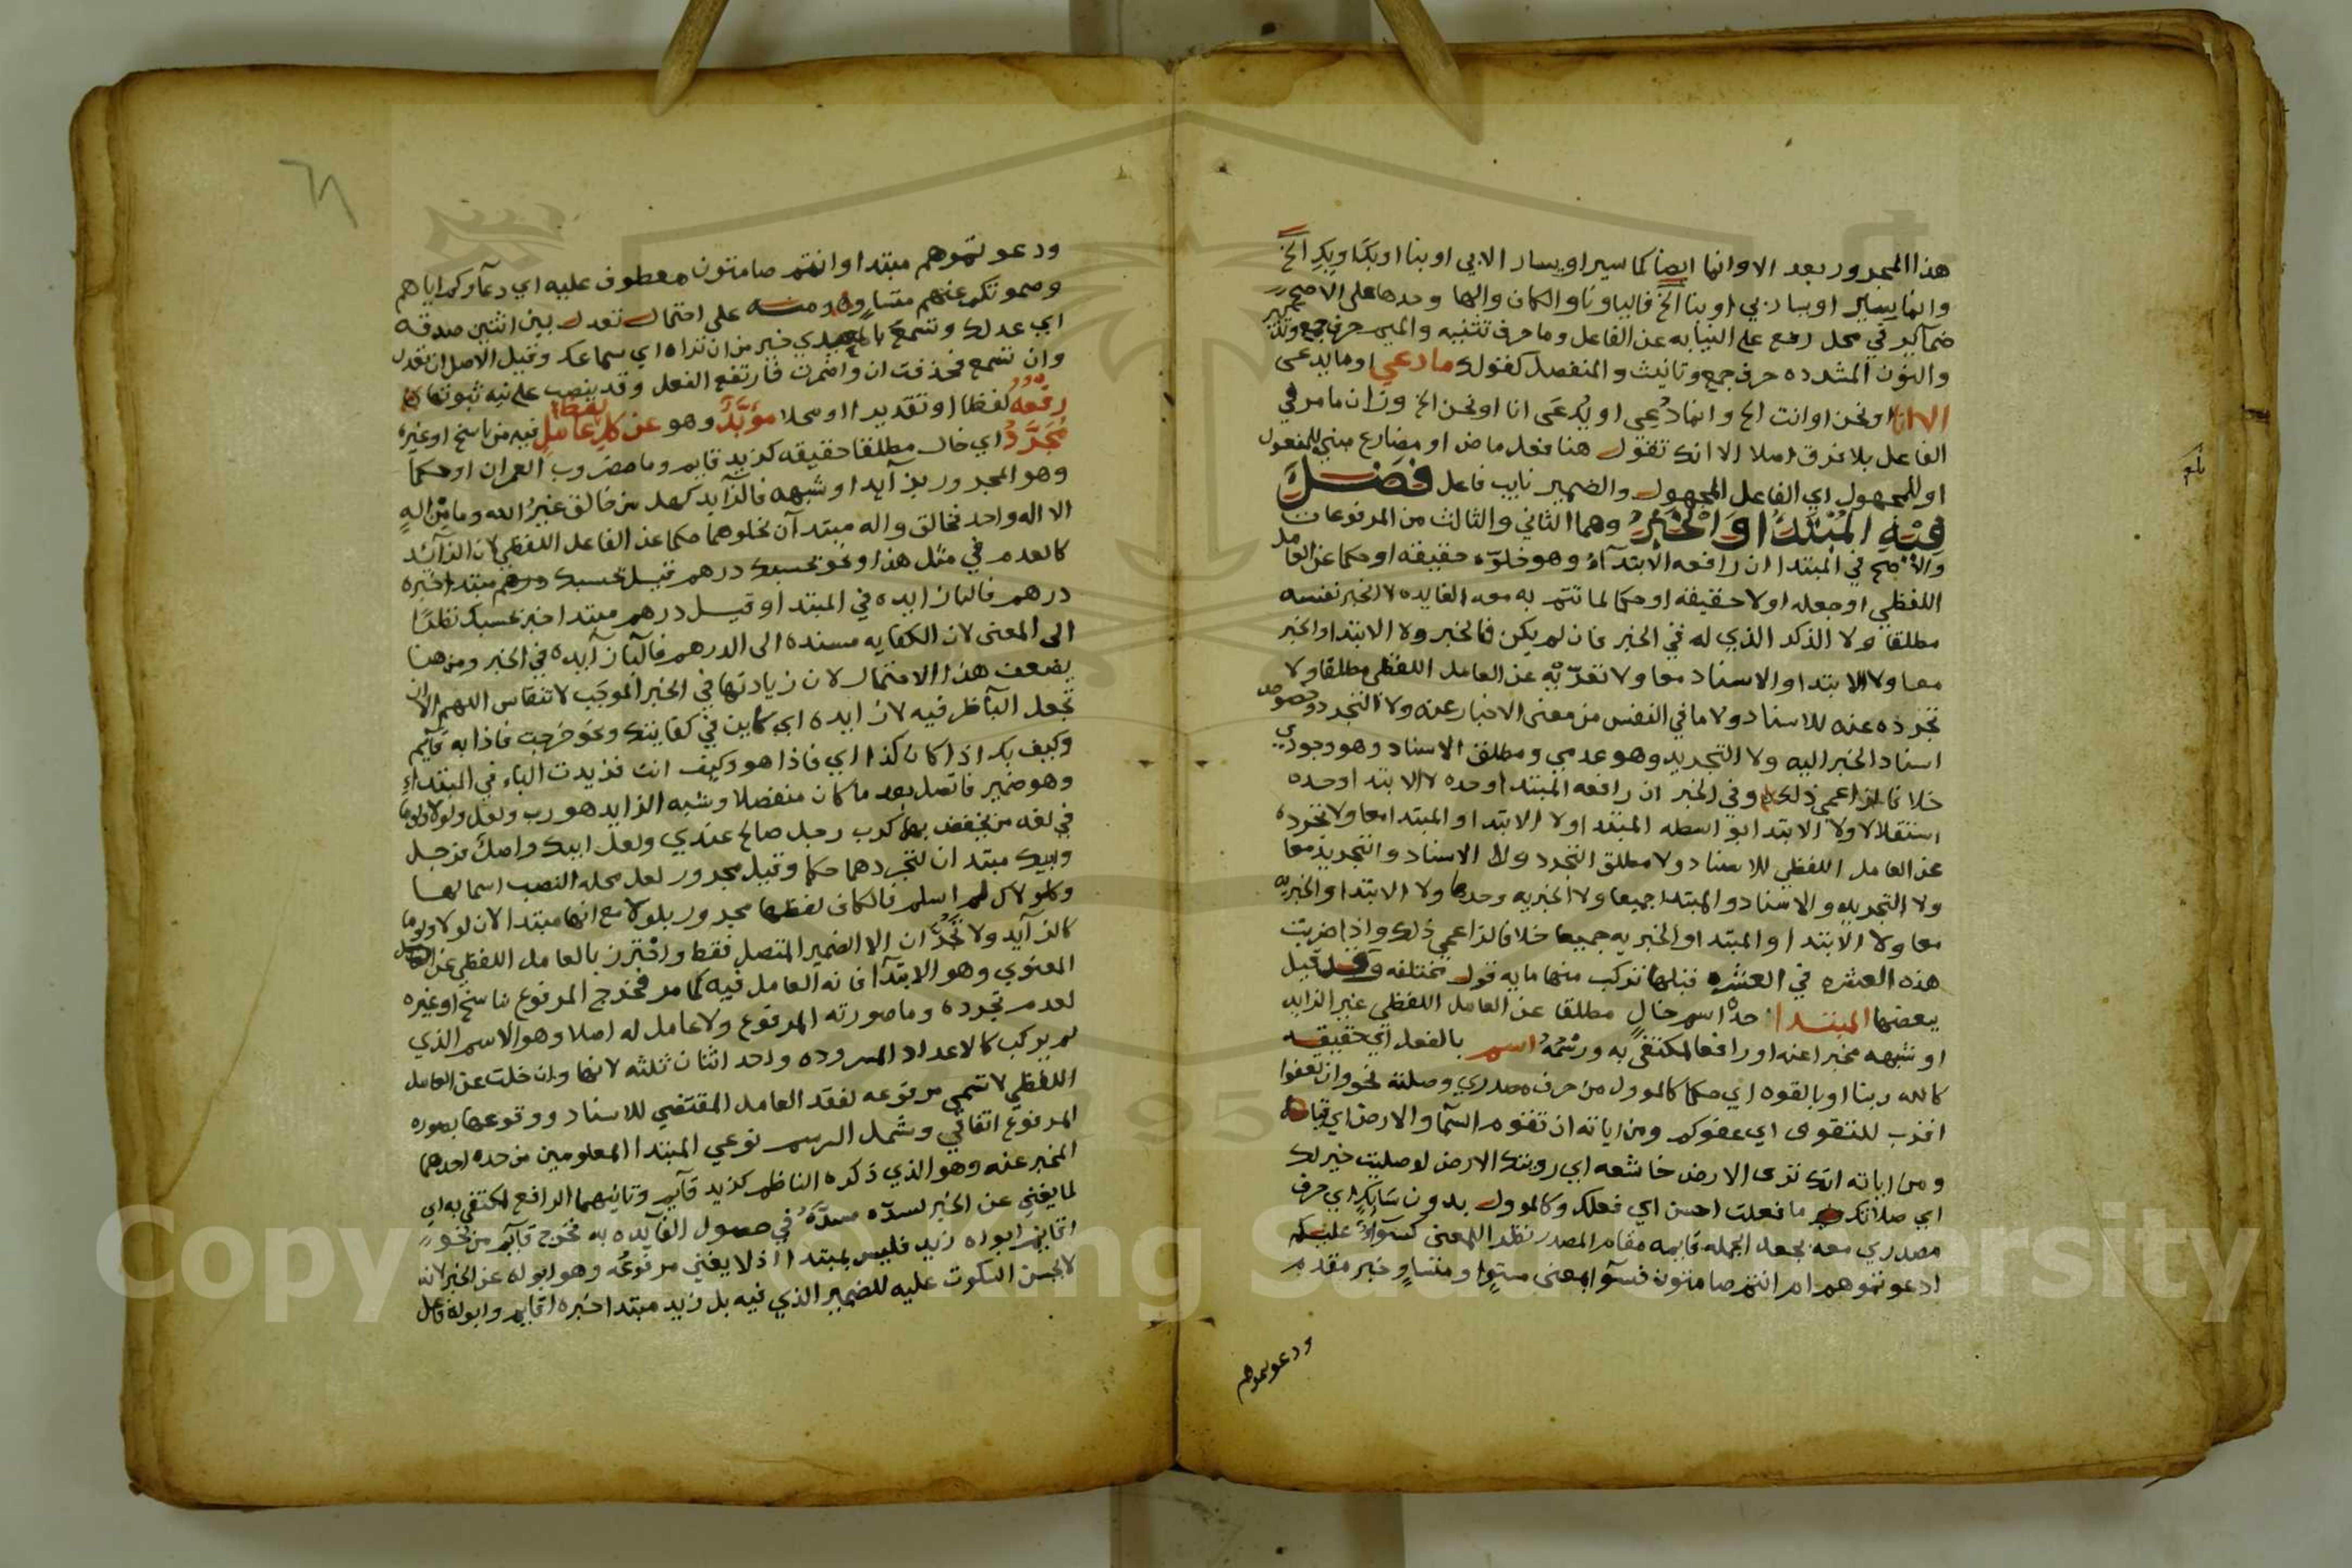 هذا المجرور بعد الا وانما ايضا كما سير او يسار الا بي او بنا او بك او بكم الخ
وانما يسار او يسار بي او بنا الخ فاليا ونا والكاف والها وحدها على الاصح
ضمآئر في محل رفع على النيابه عن الفاعل وما حرف تثنيه والميم حرف جمع وتذكير
والنون المشدده حرف جمع وتانيث والمنفصل كقولك ما دعي او ما يدعى
الا انا او نحن او انت الخ وانما دُعِي او يُدعَى انا او نحن الخ وزان ما مر في
الفاعل بلا فرق اصلا الا انك تقول هنا فعل ماض او مضارع مبني للمفعول
او للمجهول اي الفاعل المجهول والضمير نايب فاعل فصل
فيه المبتدا والخبر وهما الثاني والثالث من المرفوعات
والاصح في المبتدا ان رافعه الابتدآء وهو خلوّه حقيقه او حكما عن العامل
اللفظي او جعله اولا حقيقه او حكما لما تتم به معه الفايده لا الخبر نفسه
مطلقا ولا الذكر الذي له في الخبر فان لم يكن فالخبر ولا الابتدا والخبر
معا ولا الابتدا والاسناد معا ولا تعرّيه عن العامل اللفظي مطلقا ولا
تجرده عنه للاسناد ولا ما في النفس من معنى الاخبار عنه ولا التجرد وخصوص
اسناد الخبر اليه ولا التجريد وهو عدمي ومطلق الاسناد وهو وجودي
خلافا لزاعمي ذلك وفي الخبر ان رافعه المبتدا وحده لا الابتدا وحده
استقلالا ولا الابتدا بواسطه المبتدا ولا الابتدا والمبتدا معا ولا تجرده
عن العامل اللفظي للاسناد ولا مطلق التجرد ولا الاسناد والتجريد معا
ولا التجريد والاسناد والمبتدا جميعا ولا الخبريه وحدها ولا الابتدا والخبريه
معا ولا الابتدا والمبتدا والخبريه جميعا خلافا لزاعمي ذلك واذا ضربت
هذه العشره في العشره قبلها تركب منها مايه قول مختلفه وقد قيل
ببعضها المبتدا حدّه اسم خالٍ مطلقا عن العامل اللفظي غير الزايد
او شبهه مخبرا عنه او رافعا لمكتفى به ورسمه اسم بالفعل اي حقيقه
كالله ربنا او بالقوه اي حكما كالموول من حرف مصدري وصلته نحو وان تعفوا
اقرب للتقوى اي عفوكم ومن اياته ان تقوم السمآ والارض اي قيامها
ومن اياته انك ترى الارض خاشعه اي رويتك الارض لو صليت خير لك
اي صلاتك ما فعلت احسن اي فعلك وكالموول بدون سابكٍ اي حرف
مصدري معه بجعل الجمله قايمه مقام المصدر نظرا للمعنى كسوآءٌ عليكم
ادعوتموهم ام انتم صامتون فسوآ بمعنى مستوٍ او متساوٍ خبر مقدم
ودعوتموهم
ودعوتموهم مبتدا وانتم صامتون معطوف عليه اي دعآؤكم اياهم
وصموتكم عنهم متساوٍ ومنه على احتمال تعدل بين اثنين صدقه
اي عدلك وتسمع بالمعيدي خير من ان تراه اي سماعك وقيل الاصل ان تعدل
وان تسمع فحذفت ان واضمرت فارتفع الفعل وقد ينصب على نيه ثبوتها
رفعه لفظا او تقديرا او محلا مؤبّدٌ وهو عن كل عامل لفظا فيه من ناسخ او غيره
مُجَرَّدُ اي خال مطلقا حقيقه كزيد قايم وما مضروب العمران او حكما
وهو المجرور بزآيد او شبهه فالزآيد كهل من خالق غيرُ الله وما من الهٍ
الا اله واحد فخالق واله مبتدآن لخلوهما حكما عن الفاعل اللفظي لان الزآئد
كالعدم في مثل هذا ونحو بحسبك درهم قيل بحسبك مبتدا خبره
درهم فالبا زايده في المبتدا وقيل درهم مبتدا خبره بحسبك نظرًا
الى المعنى لان الكفايه مسنده الى الدرهم فالبآ زآيده في الخبر ومن هنا
يضعف هذا الاحتمال لان زيادتها في الخبر الموجَب لا تنقاس اللهم الا ان
تجعل البآ ظرفيه لا زايده اي كاين في كفايتك ونحو خرجت فاذا به قآيم
وكيف بك اذا كان كذا اي فاذا هو وكيف انت فزيدت الباء في المبتداءِ
وهو ضمير فاتصل بعد ما كان منفصلا وشبه الزايد هو رب ولعل ولولا ولوما
في لغه من يخفض بها كرب رجل صالح عندي ولعل ابيك واصلٌ فرجل
وابيك مبتدان لتجردهما حكما وقيل مجرور لعل محله النصب اسما لها
ولولاك لم اسلم فالكاف لفظها مجرور بلولا مع انها مبتدا لان لولا ولوما
كالزآيد ولا تجُرّان الا الضمير المتصل فقط واحترز بالعامل اللفظي عن العامل
المعنوي وهو الابتدآ فانه العامل فيه كما مر فخرج المرفوع بناسخ او غيره
لعدم تجرده وما صورته المرفوع ولا عامل له اصلا وهو الاسم الذي
لم يركب كالاعداد المسروده واحد اثنان ثلثه لانها وان خلت عن العامل
اللفظي لا تسمى مرفوعه لفقد العامل المقتضي للاسناد ووقوعها بصوره
المرفوع اتفاقي وشمل الرسم نوعي المبتدا المعلومين من حده احدهما
المخبر عنه وهو الذي ذكره الناظم كزيد قآيم وثانيهما الرافع لمكتفى به اي
لما يغني عن الخبر لسدّه مسدّه في حصول الفآيده به فخرج قآيم من نحوِ
اقايم ابوه زيد فليس بمبتدا اذ لا يغني مرفوعُه وهو ابوه عن الخبر لانه
لا يحسن السكوت عليه للضمير الذي فيه بل زيد مبتدا خبره اقايم وابوه فاعل
Copyright © King Saud University